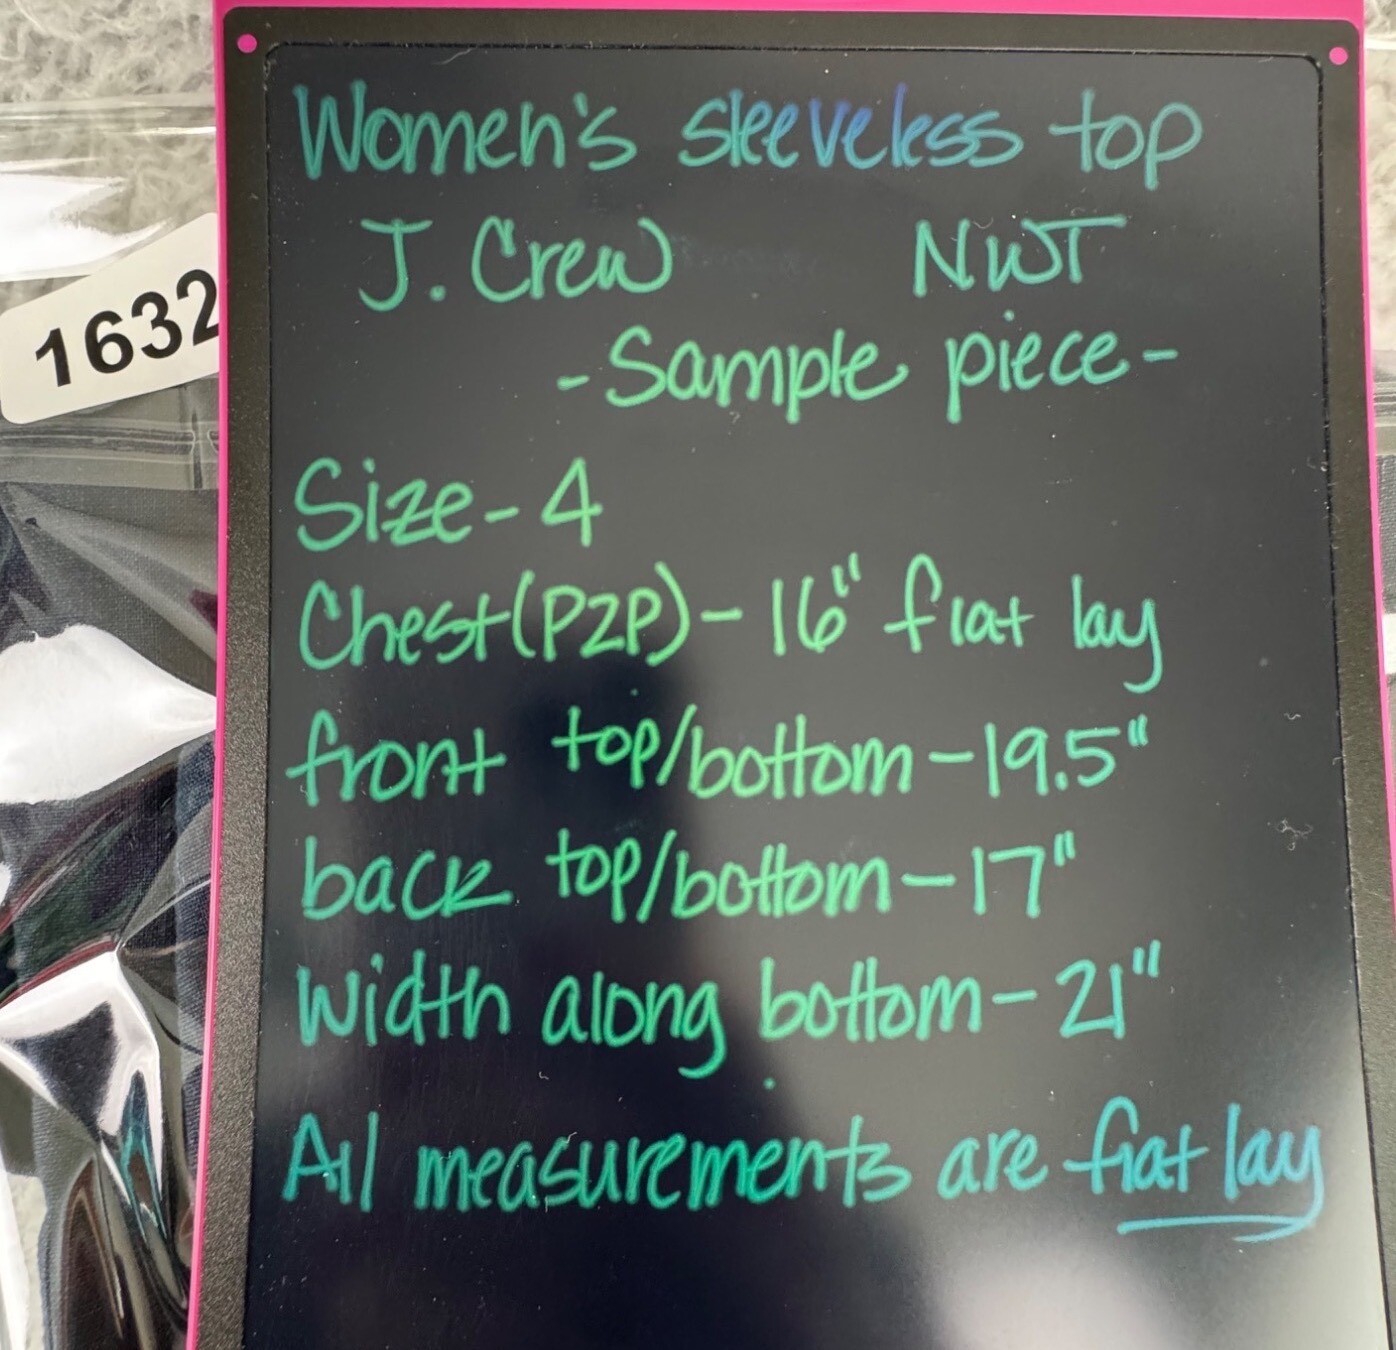 Women's sleeveless top
J. Crew NWT
- Sample piece -
1632
Size - 4
Chest (P2P) - 16" flat lay
front top/bottom - 19.5"
back top/bottom - 17"
Width along bottom - 21"
All measurements are flat lay